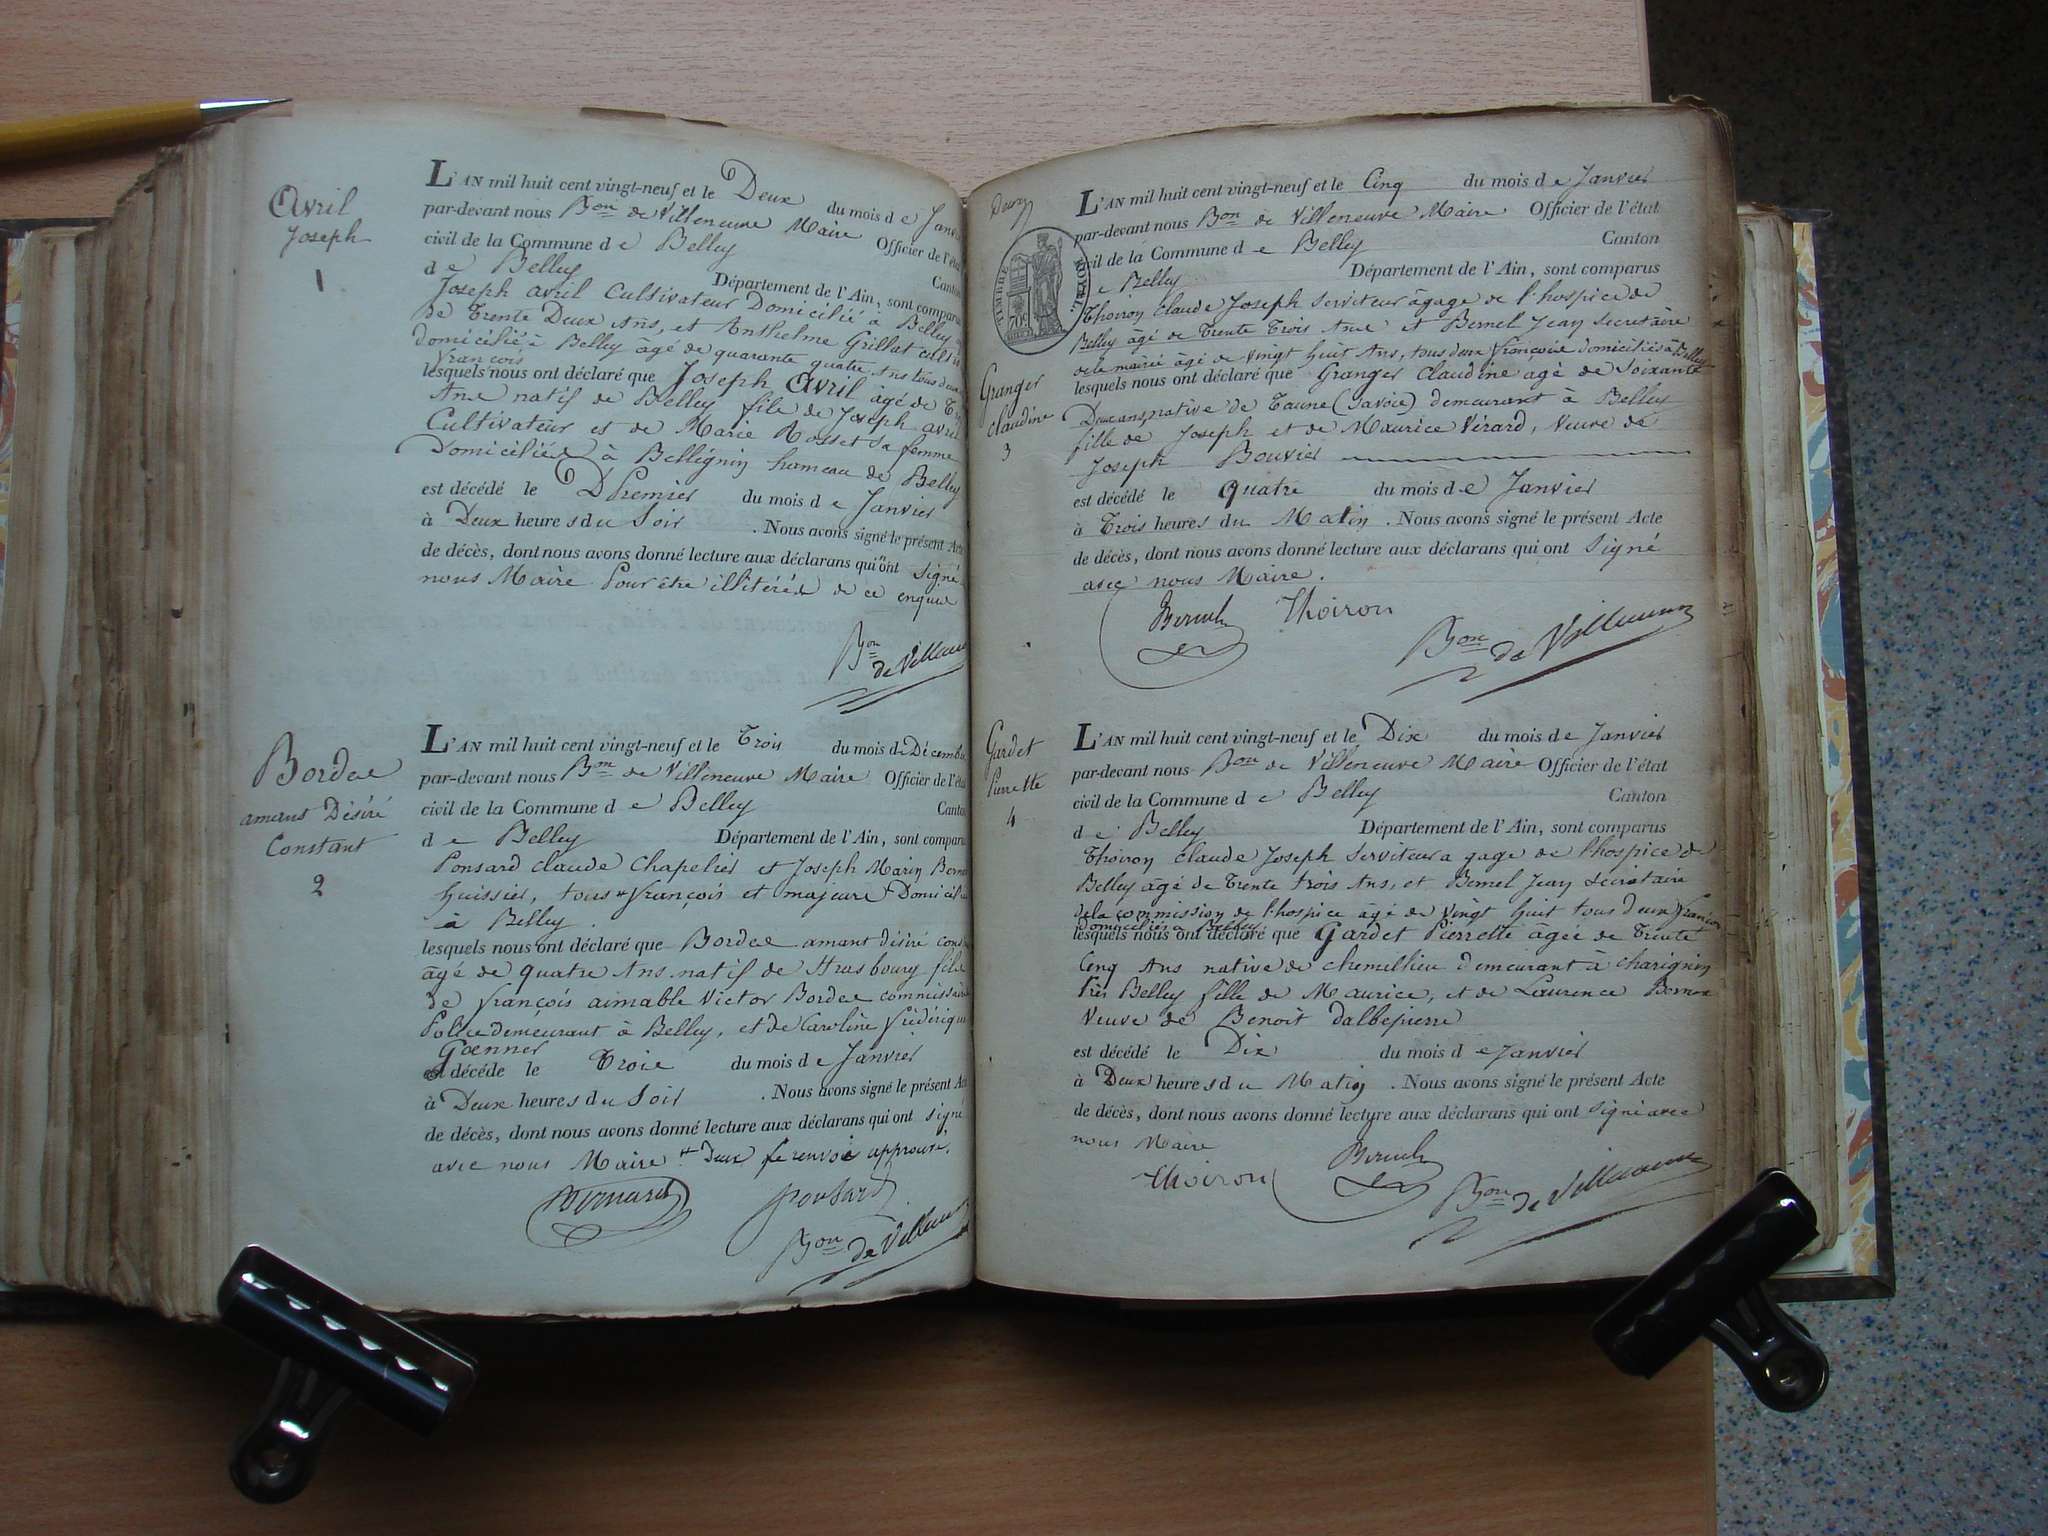 Avril
Joseph
1
L'AN mil huit cent vingt-neuf et le Deux du mois de Janv
par-devant nous Bon de Villeneuve Maire Officier de l'état
civil de la Commune de Belley Canton
de Belley Département de l'Ain, sont comparus
Joseph avril Cultivateur Domicilié à Belley
De Trente Deux Ans, et Anthelme Grillat cultiv
domicilié à Belley âgé de quarante quatre Ans tous deux
françois
lesquels nous ont déclaré que Joseph Avril âgé de
Ans natif de Belley fils de Joseph avril
Cultivateur et de Marie Rosset sa femme
Domiciliés à Bellignin hameau de Belley
est décédé le Premier du mois de Janvier
à Deux heures du Soir . Nous avons signé le présent Acte
de décès, dont nous avons donné lecture aux déclarans qui n'ont signé
nous Maire Pour être illitérés de ce enquis
Bon de Villeneuve
Bordes
amans Désiré
Constant
2
L'AN mil huit cent vingt-neuf et le Trois du mois de Décembre
par-devant nous Bon de Villeneuve Maire Officier de l'état
civil de la Commune de Belley Canton
de Belley Département de l'Ain, sont comparu
Ponsard Claude Chapelier et Joseph Marin Bernard
huissier, tous # françois et majeurs Domiciliés
à Belley.
lesquels nous ont déclaré que Bordes amant désiré cons
âgé de quatre Ans natif de Strasbourg fils
de françois aimable Victor Bordes commissaire
Police demeurant à Belley, et de Caroline frédérique
Goenner
est décédé le Trois du mois de Janvier
à Deux heures du Soir . Nous avons signé le présent Acte
de décès, dont nous avons donné lecture aux déclarans qui ont signé
avec nous Maire # Deux le renvoi approuvé.
Bernard Ponsard
Bon de Villeneuve
TIMBRE ROYAL
70c
Granger
claudine
3
L'AN mil huit cent vingt-neuf et le Cinq du mois de Janvier
par-devant nous Bon de Villeneuve Maire Officier de l'état
civil de la Commune de Belley Canton
de Belley Département de l'Ain, sont comparus
Thoiron claude Joseph Serviteur à gage de l'hospice de
Belley âgé de Trente Trois Ans et Bernel Jean Secrétaire
de la mairie âgé de vingt huit Ans, tous deux françois domiciliés à Belley
lesquels nous ont déclaré que Granger Claudine agé de Soixante
Deux ans native de (Savoie) demeurant à Belley
fille de Joseph et de Maurice Vérard, Veuve de
Joseph Bouvier
est décédé le quatre du mois de Janvier
à Trois heures du Matin . Nous avons signé le présent Acte
de décès, dont nous avons donné lecture aux déclarans qui ont Signé
avec nous Maire.
Thoiron
Bon de Villeneuve
Gardet
Pierrette
4
L'AN mil huit cent vingt-neuf et le Dix du mois de Janvier
par-devant nous Bon de Villeneuve Maire Officier de l'état
civil de la Commune de Belley Canton
de Belley Département de l'Ain, sont comparus
Thoiron Claude Joseph Serviteur a gage de l'hospice de
Belley âgé de Trente trois Ans, et Bernel Jean Secretaire
de la commission de l'hospice âgé de Vingt huit tous deux françois
Domiciliés à Belley
lesquels nous ont déclaré que Gardet Pierrette âgée de Trente
Cinq Ans native de chemillieu demeurant à charignin
Près Belley fille de Maurice, et de Laurence
Veuve de Benoit dalbepierre
est décédé le Dix du mois de Janvier
à Deux heures du Matin . Nous avons signé le présent Acte
de décès, dont nous avons donné lecture aux déclarans qui ont Signé avec
nous Maire
Thoiron
Bon de Villeneuve